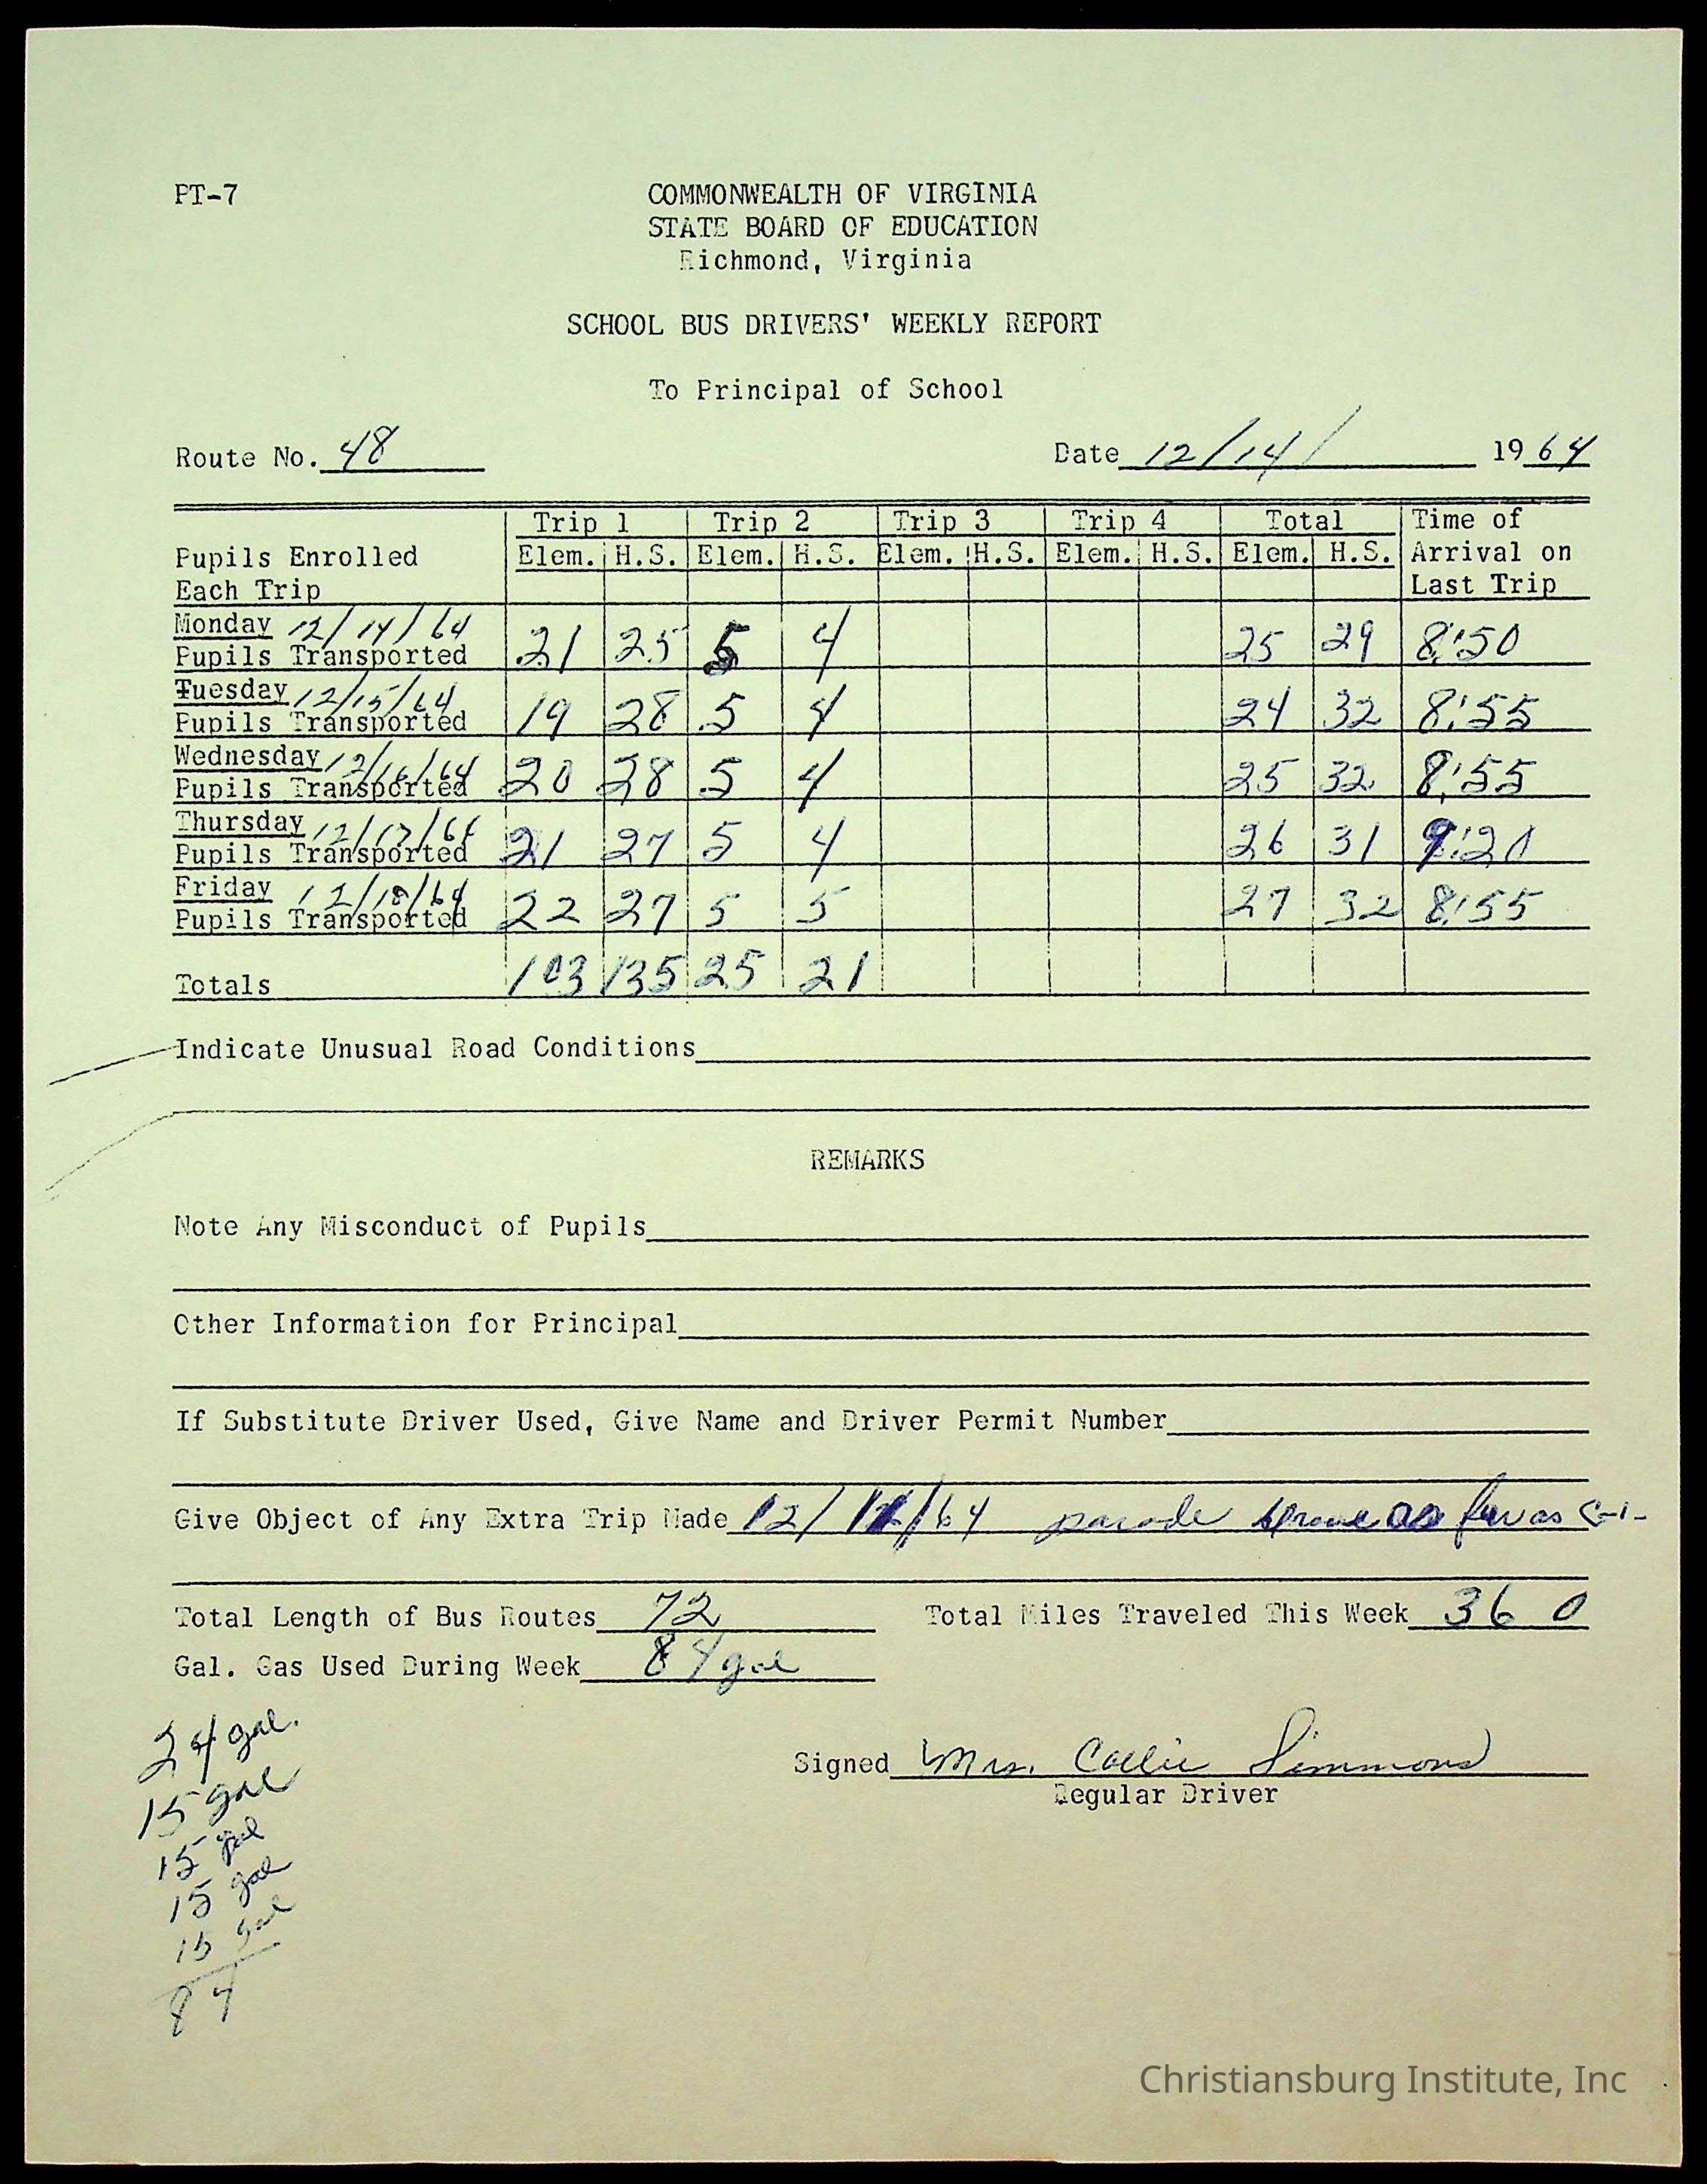 PT-7
COMMONWEALTH OF VIRGINIA
STATE BOARD OF EDUCATION
Richmond, Virginia
SCHOOL BUS DRIVERS' WEEKLY REPORT
To Principal of School
Route No. 48 Date 12/14/ 1964
Trip 1 Trip 2 Trip 3 Trip 4 Total Time of
Pupils Enrolled Elem. H.S. Elem. H.S. Elem. H.S. Elem. H.S. Elem. H.S. Arrival on
Each Trip Last Trip
Monday 12/14/64
Pupils Transported 21 25 5 4 25 29 8:50
Tuesday 12/15/64
Pupils Transported 19 28 5 4 24 32 8:55
Wednesday 12/16/64
Pupils Transported 20 28 5 4 25 32 8:55
Thursday 12/17/64
Pupils Transported 21 27 5 4 26 31 9:20
Friday 12/18/64
Pupils Transported 22 27 5 5 27 32 8:55
Totals 103 135 25 21
Indicate Unusual Road Conditions
REMARKS
Note Any Misconduct of Pupils
Other Information for Principal
If Substitute Driver Used, Give Name and Driver Permit Number
Give Object of Any Extra Trip Made 12/ /64 parade as far as
Total Length of Bus Routes 72 Total Miles Traveled This Week 360
Gal. Gas Used During Week 84 gal
24 gal.
Signed Mrs. Callie Simmons
15 gal
Regular Driver
15 gal
15 gal
15 gal
84
Christiansburg Institute, Inc